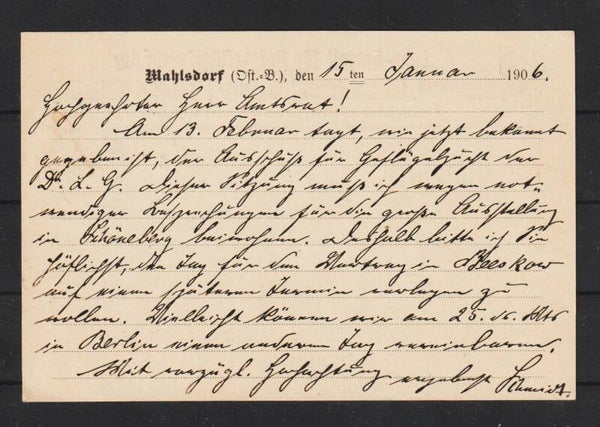 Mahlsdorf (Ost.-B.), den 15ten Januar 1906.
Hochgeehrter Herr Amtsrat!
Am 13. Februar tagt, wie jetzt bekannt
gegeben ist, der Ausschuß für Geflügelzucht der
D. L. G. Dieser Sitzung muß ich wegen not-
wendiger Besprechungen für die große Ausstellung
in Schöneberg beiwohnen. Deshalb bitte ich Sie
höflichst, den Tag für den Vortrag in Beeskow
auf einen späteren Termin verlegen zu
wollen. Vielleicht können wir am 25. ds. Mts
in Berlin einen anderen Tag vereinbaren.
Mit vorzügl. Hochachtung ergebenst Schmidt.